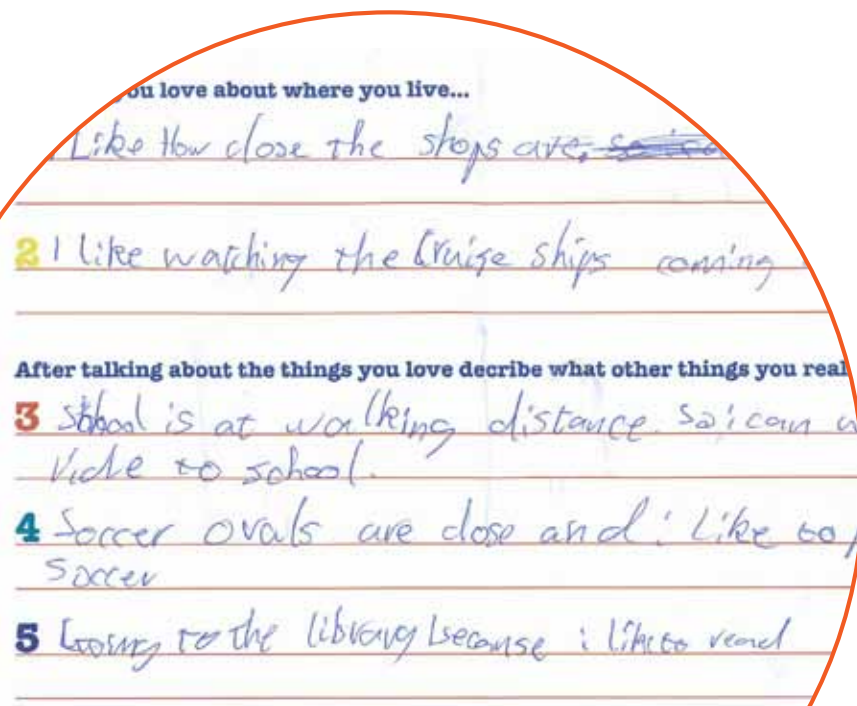 you love about where you live...
Like How close the shops are,
2 I like watching the Cruise ships coming
After talking about the things you love decribe what other things you real
3 School is at walking distance. So i can
ride to school.
4 Soccer ovals are close and i Like to
Soccer
5 Going to the library because i like to read